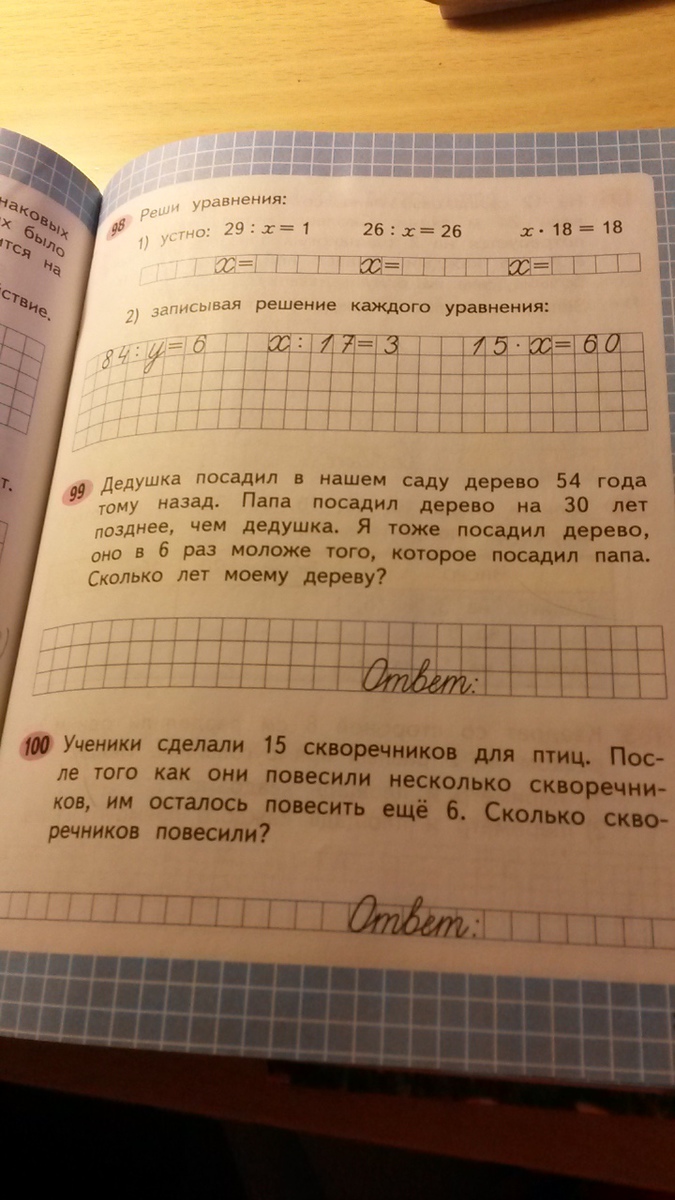 наковых
х было
ится на
йствие.
т.
98 Реши уравнения:
1) устно: 29 : x = 1 26 : x = 26 x · 18 = 18
x= x= x=
2) записывая решение каждого уравнения:
84 : y = 6 x : 17 = 3 15 · x = 60
99 Дедушка посадил в нашем саду дерево 54 года
тому назад. Папа посадил дерево на 30 лет
позднее, чем дедушка. Я тоже посадил дерево,
оно в 6 раз моложе того, которое посадил папа.
Сколько лет моему дереву?
Ответ:
100 Ученики сделали 15 скворечников для птиц. Пос-
ле того как они повесили несколько скворечни-
ков, им осталось повесить ещё 6. Сколько скво-
речников повесили?
Ответ: